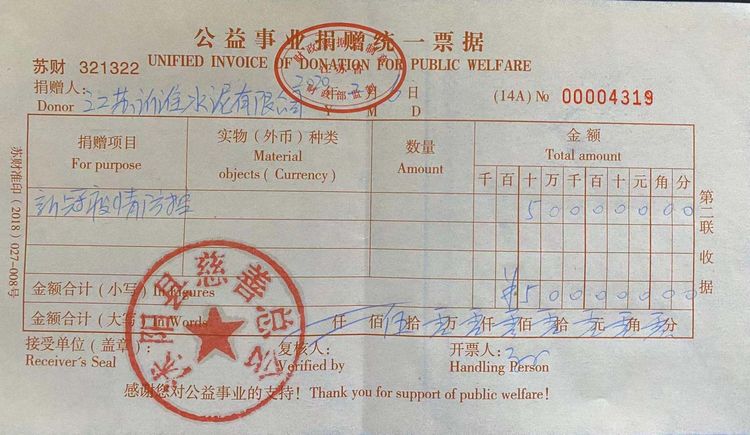 公益事业捐赠统一票据
UNIFIED INVOICE OF DONATION FOR PUBLIC WELFARE
苏财 321322
捐赠人: 江苏沂淮水泥有限公司 2020年 月 日
Donor Y M D
(14A) № 00004319
捐赠项目 实物(外币)种类 数量 金额
For purpose Material objects (Currency) Amount Total amount
千 百 十 万 千 百 十 元 角 分
新冠疫情防控 5 0 0 0 0 0 0 0
金额合计(小写) In Figures ¥ 5 0 0 0 0 0 0 0
金额合计(大写) In Words 仟 佰 伍 拾 零 万 零 仟 零 佰 零 拾 零 元 零 角 零 分
接受单位(盖章): 复核人: 开票人:
Receiver's Seal Verified by Handling Person
感谢您对公益事业的支持! Thank you for support of public welfare!
苏财准印(2018)027-008号
第二联 收据
沭阳县慈善总会
江苏省
财政部监制